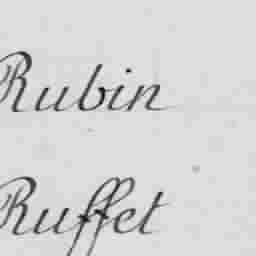 Rubin
Ruffet